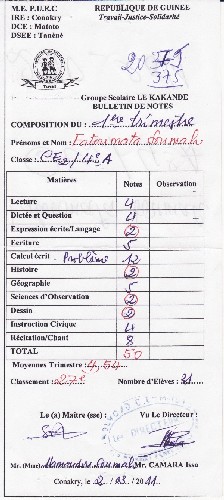 M.E. P.U.E.C REPUBLIQUE DE GUINEE
IRE : Conakry Travail-Justice-Solidarité
DCE : Matoto
DSEE : Tanéné
Groupe Scolaire LE KAKANDE
BULLETIN DE NOTES
COMPOSITION DU : 1er trimestre
Prénoms et Nom : Fatoumata Soumah
Classe :
Matières Notes Observation
Lecture 4
Dictée et Question 4
Expression écrite/Langage 2
Ecriture 5
Calcul écrit Problème 12
Histoire 2
Géographie 5
Sciences d'Observation 2
Dessin 2
Instruction Civique 4
Récitation/Chant 8
TOTAL 50
Moyennes Trimestre : 4,54
Classement : 27è Nombre d'Elèves : 31
Le (a) Maître (sse) : Vu Le Directeur :
Mr. (Mme) Soumah Mr. CAMARA Issa
Conakry, le 2/03/2011